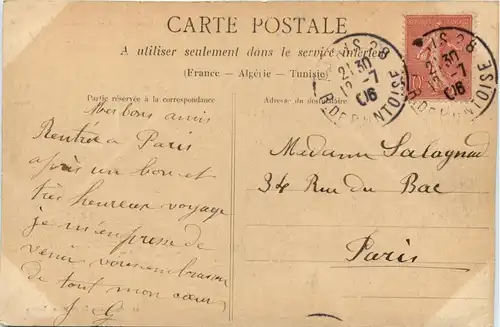 CARTE POSTALE
A utiliser seulement dans le service intérieur
(France - Algérie - Tunisie)
Partie réservée à la correspondance
Adresse du destinataire
Mes bons amis
Rentrée à Paris
après un bon et
très heureux voyage
je m'empresse de
venir vous embrasser
de tout mon cœur
J. G
Madame Salagnad
34 Rue du Bac
Paris
PARIS 28
21 30
12 -7
06
R. DE PONTOISE
10